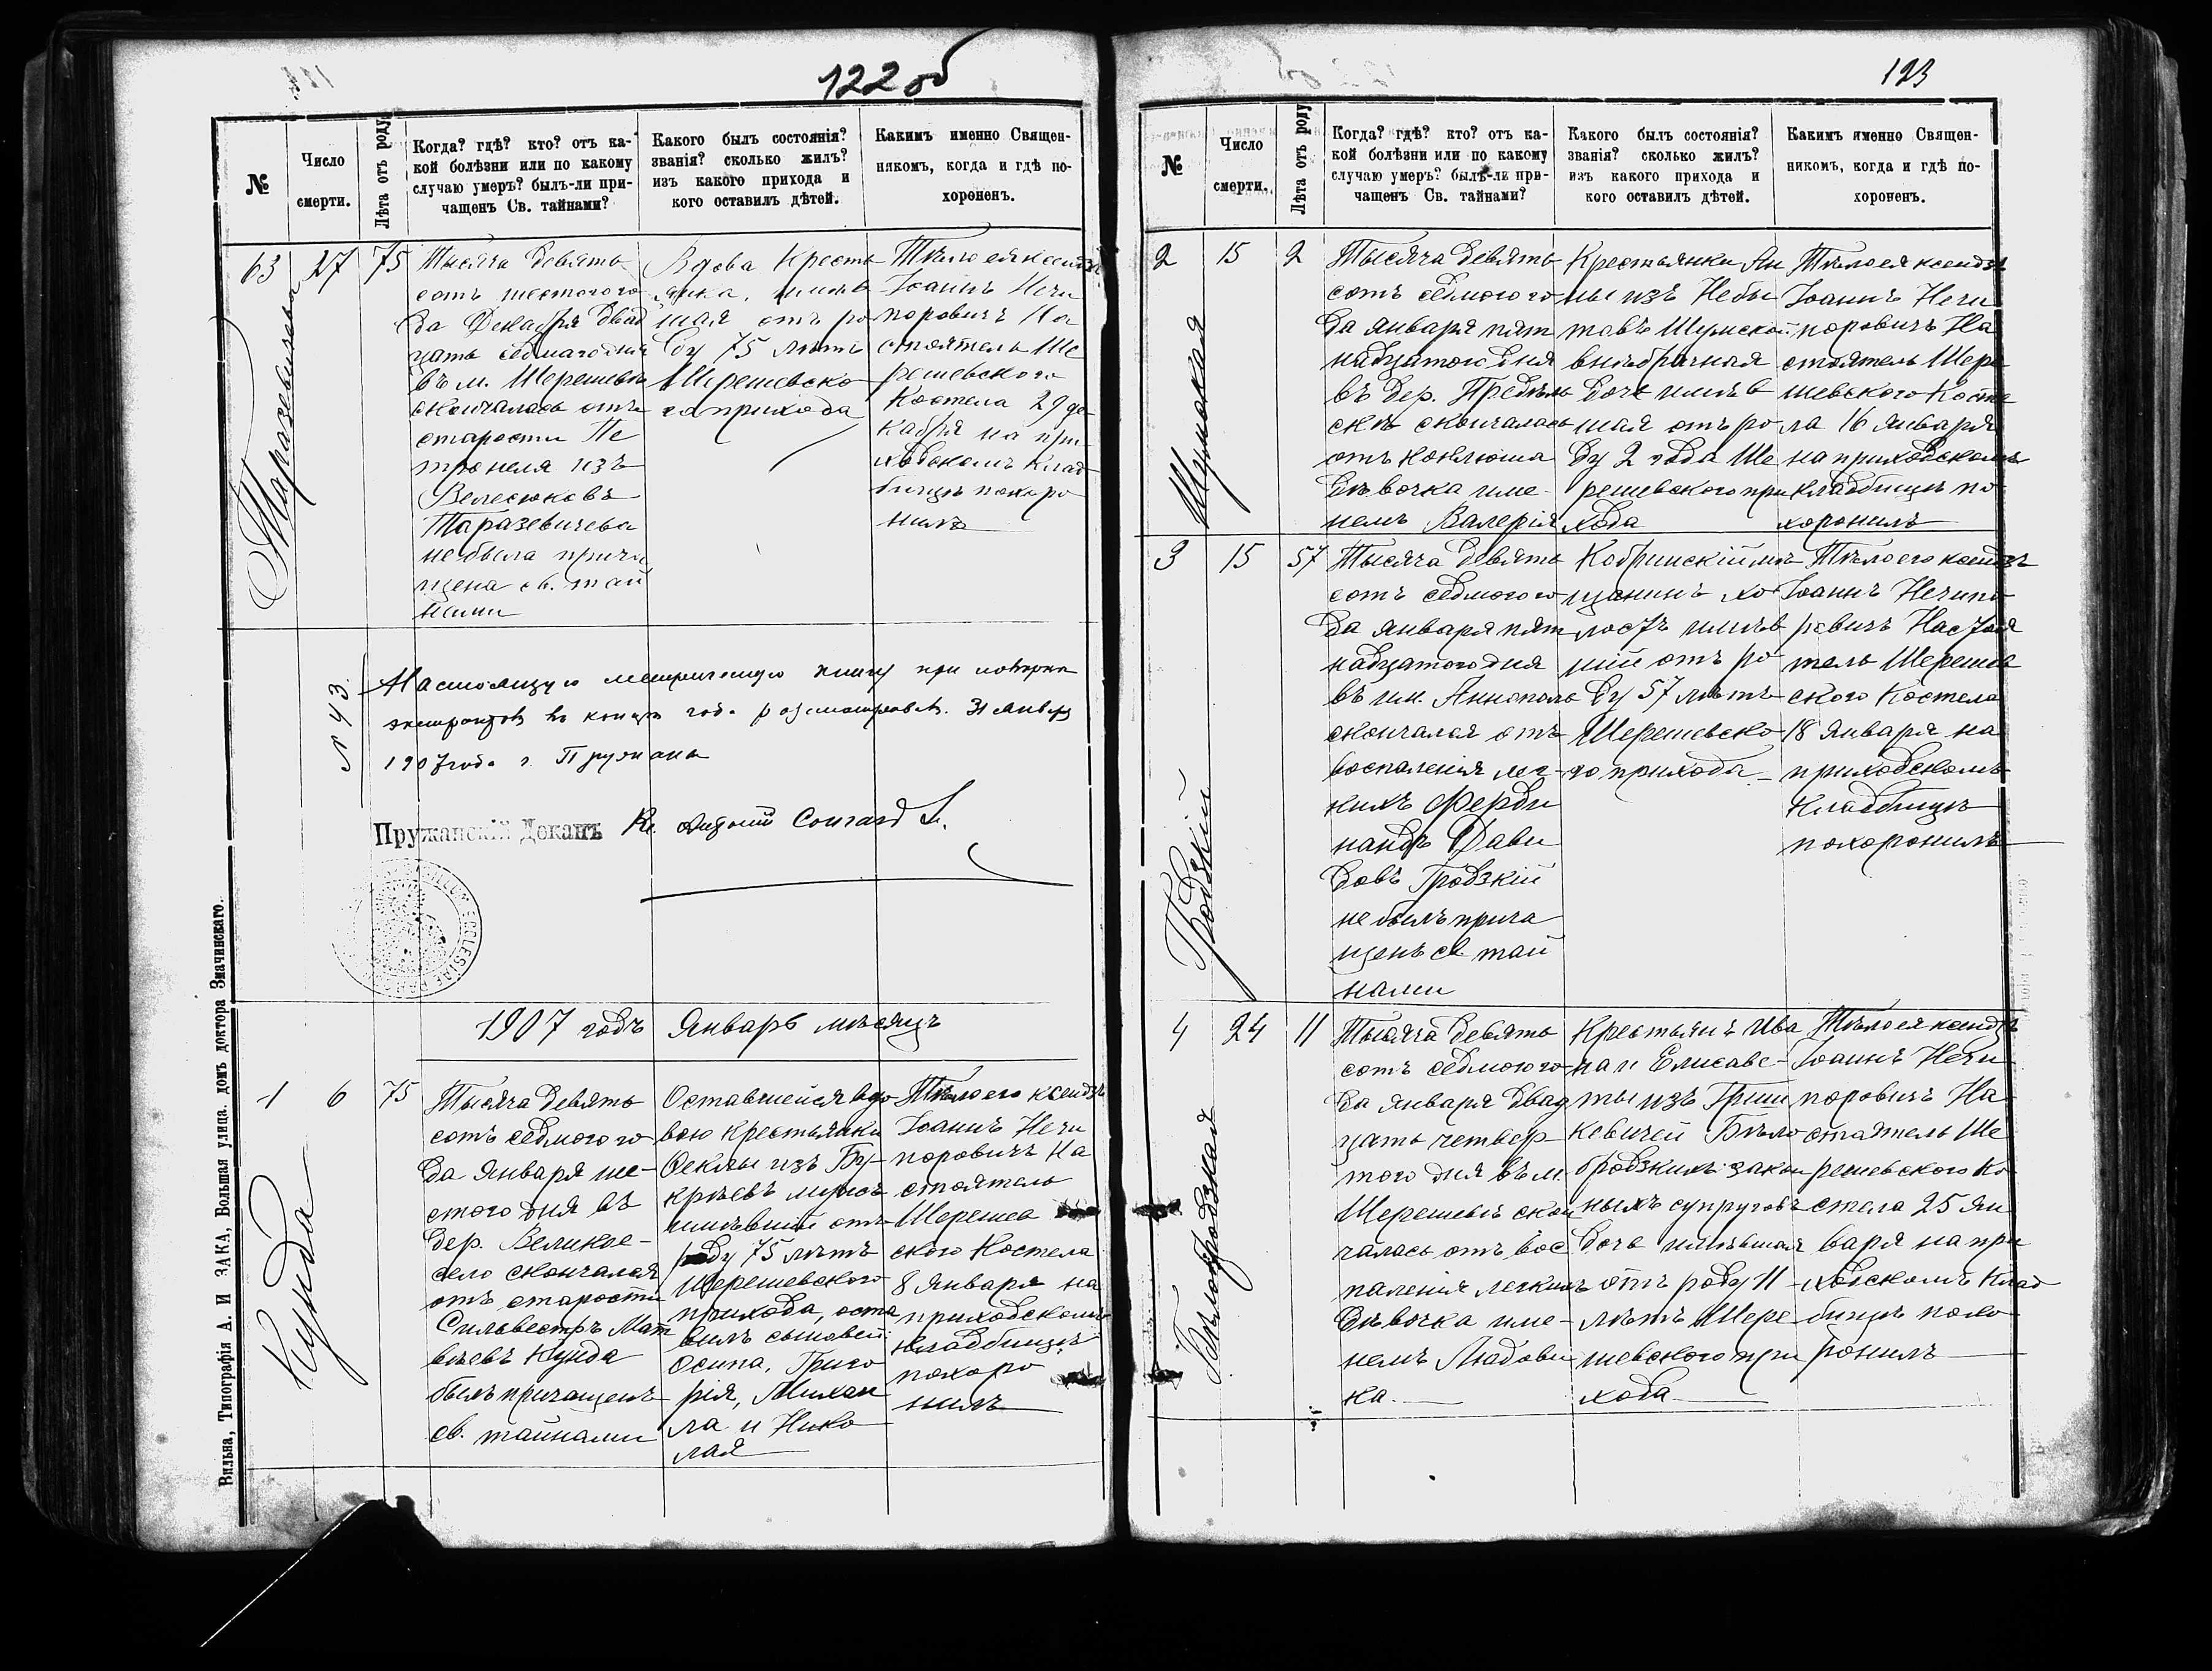 122 об
№
Число
смерти.
Лѣта отъ роду
Когда? гдѣ? кто? отъ ка-
кой болѣзни или по какому
случаю умеръ? былъ-ли при-
чащенъ Св. тайнами?
Какого былъ состоянія?
званія? сколько жилъ?
изъ какого прихода и
кого оставилъ дѣтей.
Какимъ именно Священ-
никомъ, когда и гдѣ по-
хороненъ.
63
27
75
Таразевичева
Тысяча девять
сотъ шестого го
да Декабря двад
цать седмаго дня
въ м. Шерешевѣ
скончалась отъ
старости Пе
тронеля изъ
Велесюковъ
Таразевичева
не была прича
щена св. тай
нами
Вдова Кресть
янка, имѣв
шая отъ ро
ду 75 лѣтъ
Шерешевско
го прихода
Тѣло ея ксендзъ
Іоаннъ Нечи
поровичъ На
стоятель Ше
решевского
Костела 29 де
кабря на при
ходскомъ Клад
бищѣ похоро
нилъ
№ 43
Настоящую метрическую книгу при повѣркѣ
экстрактов въ концѣ года разсматривалъ. 31 Января
1907 года г. Пружаны
Пружанскій Деканъ
1907 годъ Январь мѣсяцъ
1
6
75
Кунда
Тысяча девять
сотъ седмого го
да Января ше-
стого дня въ
дер. Великое-
село скончался
отъ старости
Сильвестръ Мат
вѣевъ Кунда
былъ причащенъ
св. тайнами
Оставшейся вдо
вою крестьянки
Ѳеклы изъ
имѣвшій отъ
роду 75 лѣтъ
Шерешевского
прихода, оста
вилъ сыновей
Осипа, Григо
рія, Михаи
ла и Нико
лая
Тѣло его ксендзъ
Іоаннъ Нечи
поровичъ На
стоятель
Шерешев
ского Костела
8 Января на
приходскомъ
кладбищѣ
похоро
нилъ
Вильна, Типографія А. И ЗАКА, Большая улица. домъ доктора Змачинскаго.
123
№
Число
смерти.
Лѣта отъ роду
Когда? гдѣ? кто? отъ ка-
кой болѣзни или по какому
случаю умеръ? былъ-ли при-
чащенъ Св. тайнами?
Какого былъ состоянія?
званія? сколько жилъ?
изъ какого прихода и
кого оставилъ дѣтей.
Какимъ именно Священ-
никомъ, когда и гдѣ по-
хороненъ.
2
15
2
Шумская
Тысяча девять
сотъ седмого го
да января пят
надцатого дня
въ дер.
скончалась
отъ коклюша
дѣвочка име-
немъ Валерія
Крестьянки Ян
ны изъ Небы
товъ Шумской
внѣбрачная
дочь имѣв
шая отъ ро
ду 2 года Ше
решевского при
хода
Тѣло ея ксендзъ
Іоаннъ Нечи
поровичъ На
стоятель Шере
шевского Косте
ла 16 января
на приходскомъ
кладбищѣ по
хоронилъ
3
15
57
Гродзкій
Тысяча девять
сотъ седмого го
да января пят
надцатого дня
въ им. Аннополь
скончался отъ
воспаленія лег-
кихъ Ферди
нандъ Дави
довъ Гродзкій
не былъ прича
щенъ св. тай
нами
Кобринскій мѣ
щанинъ хо
лостъ имѣв
шій отъ ро
ду 57 лѣтъ
Шерешевско
го прихода
Тѣло его ксендзъ
Іоаннъ Нечипо
ровичъ Настоя
тель Шерешев
ского Костела
18 Января на
приходскомъ
кладбищѣ
похоронилъ
4
24
11
Бѣлобродзкая
Тысяча девять
сотъ седмого го
да января двад
цать четвер
того дня въ м.
Шерешевѣ скон
чалась отъ вос
паленія легкихъ
дѣвочка име-
немъ Людови
ка.
Крестьянъ Ива
на и Елисаве-
ты изъ Гриш
кевичей Бѣло
бродзкихъ закон
ныхъ супруговъ
дочь имѣвшая
отъ роду 11
лѣтъ Шере
шевского при
хода
Тѣло ея ксендзъ
Іоаннъ Нечи
поровичъ На
стоятель Ше
решевского Ко
стела 25 Ян
варя на при
ходскомъ Клад
бищѣ похо
ронилъ